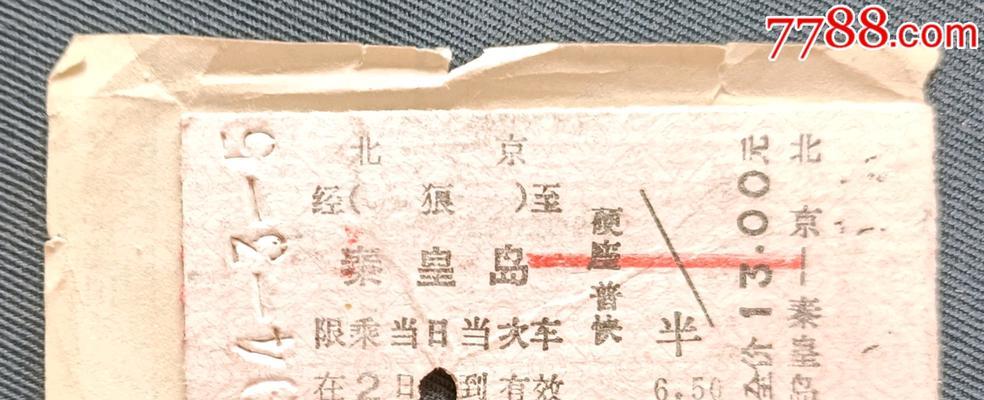 7788.com
北京
经(狼)至
秦皇岛
限乘当日当次车
在2日到有效
硬座普快
半
6.50
全价13.00元
北京—秦皇岛